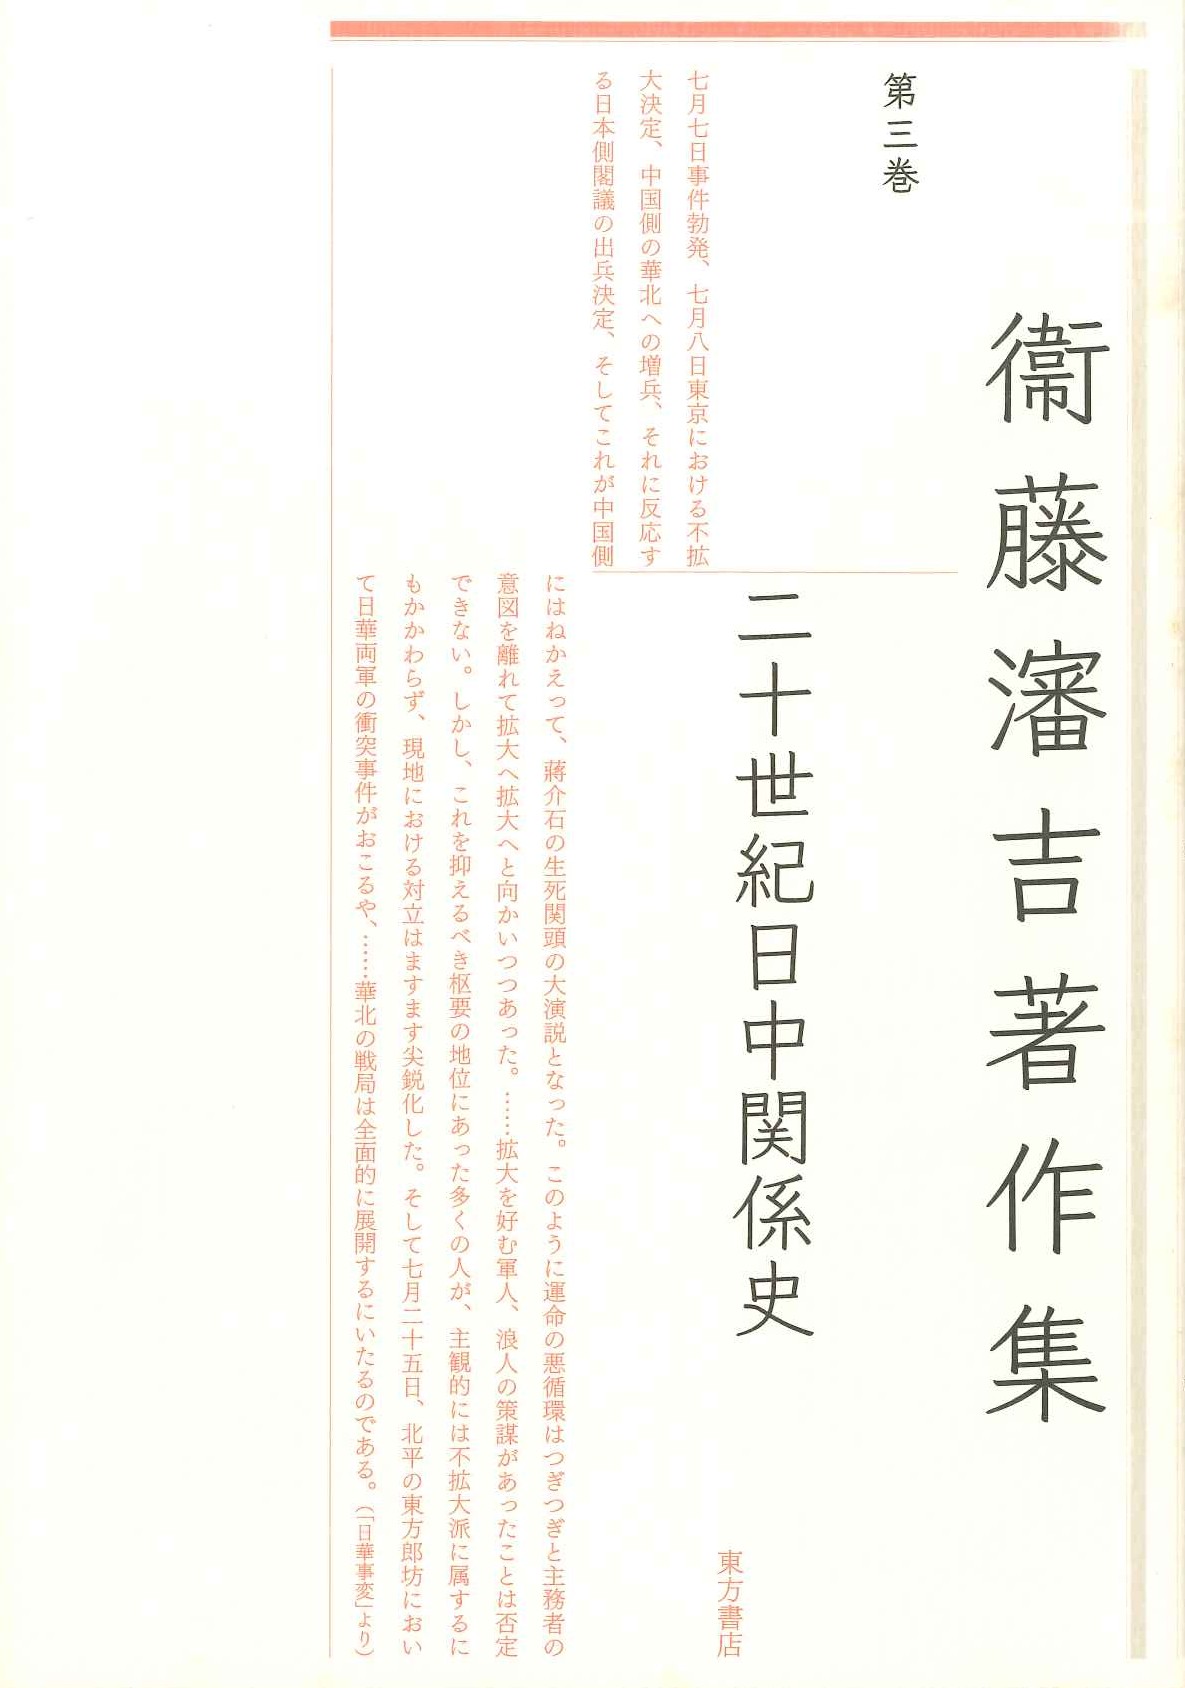 衞藤瀋吉著作集
第三巻
二十世紀日中関係史
東方書店
七月七日事件勃発、七月八日東京における不拡
大決定、中国側の華北への増兵、それに反応す
る日本側閣議の出兵決定、そしてこれが中国側
にはねかえって、蔣介石の生死関頭の大演説となった。このように運命の悪循環はつぎつぎと主務者の
意図を離れて拡大へ拡大へと向かいつつあった。……拡大を好む軍人、浪人の策謀があったことは否定
できない。しかし、これを抑えるべき枢要の地位にあった多くの人が、主観的には不拡大派に属するに
もかかわらず、現地における対立はますます尖鋭化した。そして七月二十五日、北平の東方郎坊におい
て日華両軍の衝突事件がおこるや、……華北の戦局は全面的に展開するにいたるのである。(「日華事変」より)